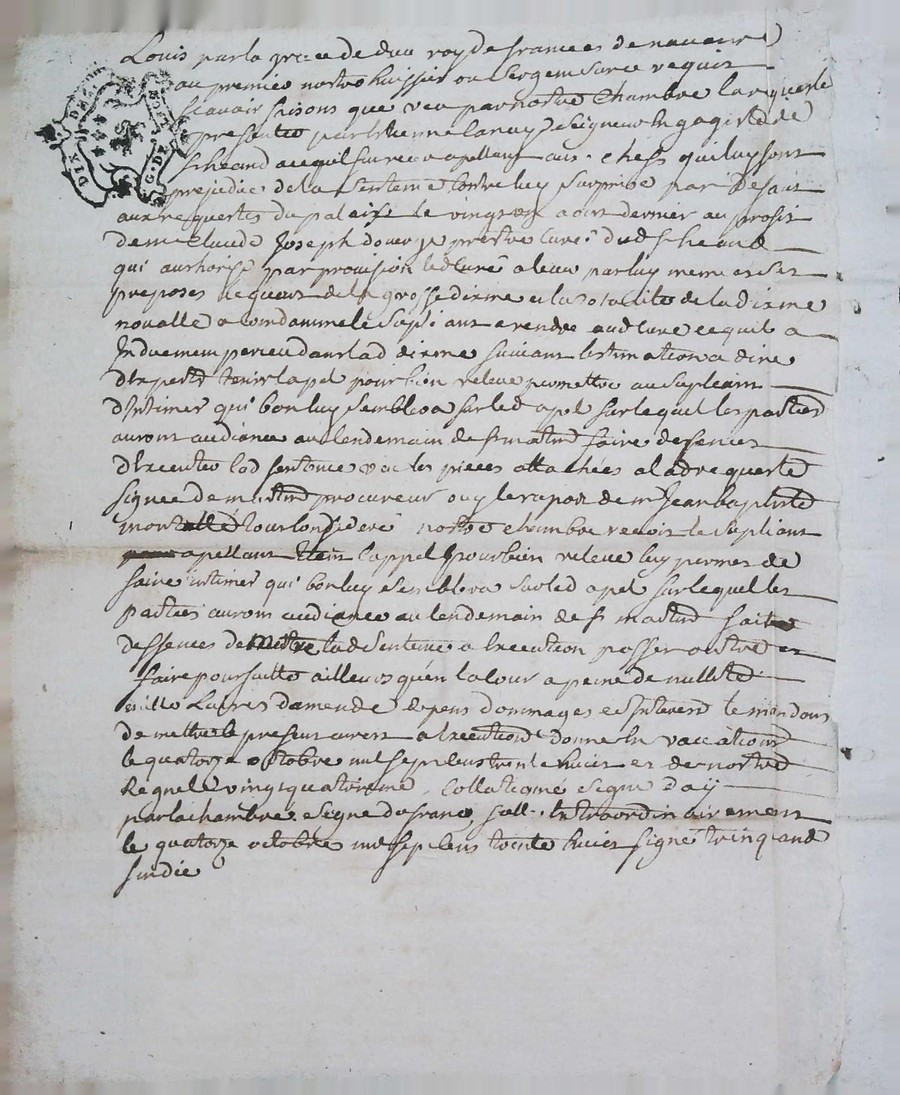 Louis par la grace de dieu roy de france et de navarre
au premier nostre huissier ou sergent sur ce requis
scavoir faisons que veu par nostre Chambre la requeste
presentée par Estienne Seigneur Engagiste de
aux chefs qui luy sont
prejudice de la Sentence Contre luy Surprise par Defaut
aux requestes du palais le vingt aout dernier au profit
de me Claude Joseph prestre Curé dud
qui authorise par provision led Curé a lever par luy meme et ses
preposes de la grosse dixme et la totalité de la dixme
novalle a Condamné le Supliant a rendre aud Cure ce quil a
Induement perceu dans lad dixme suivant lestimation a dire
dExperts tenir lapel pour bien relevé permettre au Supliant
dIntimer qui bon luy Semblera sur led apel sur lequel les parties
auront audiance au lendemain de st martin faire defences
dExecuter lad Sentence veu les pieces attachées a lad requeste
signée de procureur ouy le raport de me Jean baptiste
nostre chambre recoit le Supliant
apellant tient lappel pour bien relevé luy permet de
faire intimer qui bon luy Semblera sur led apel sur lequel les
parties auront audiance au lendemain de st martin fait
deffences de mettre lad Sentence a Execution passer outre et
faire poursuitte ailleurs qu'en la Cour a peine de nullité
mille Livres damende depens dommages et Interest te mandons
de mettre le present arrest a Execution donné En vaccations
le quatorze octobre mil sept cens trente huict et de nostre
Regne le vingt quatrieme Collationné Signé Daÿ
par la chambre Signé dufranc, Scellé Extraordinairement
le quatorze octobre mil sept cens trente huict Signé trinquand
sindic
DIX DEN.
G. DE